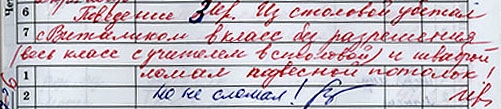 6 Поведение 3 Мр. Из столовой убежал
7 с Виталиком в класс без разрешения
(весь класс с учителем в столовой) и шваброй
1 ломал подвесной потолок!
2 но не сломал! Мр